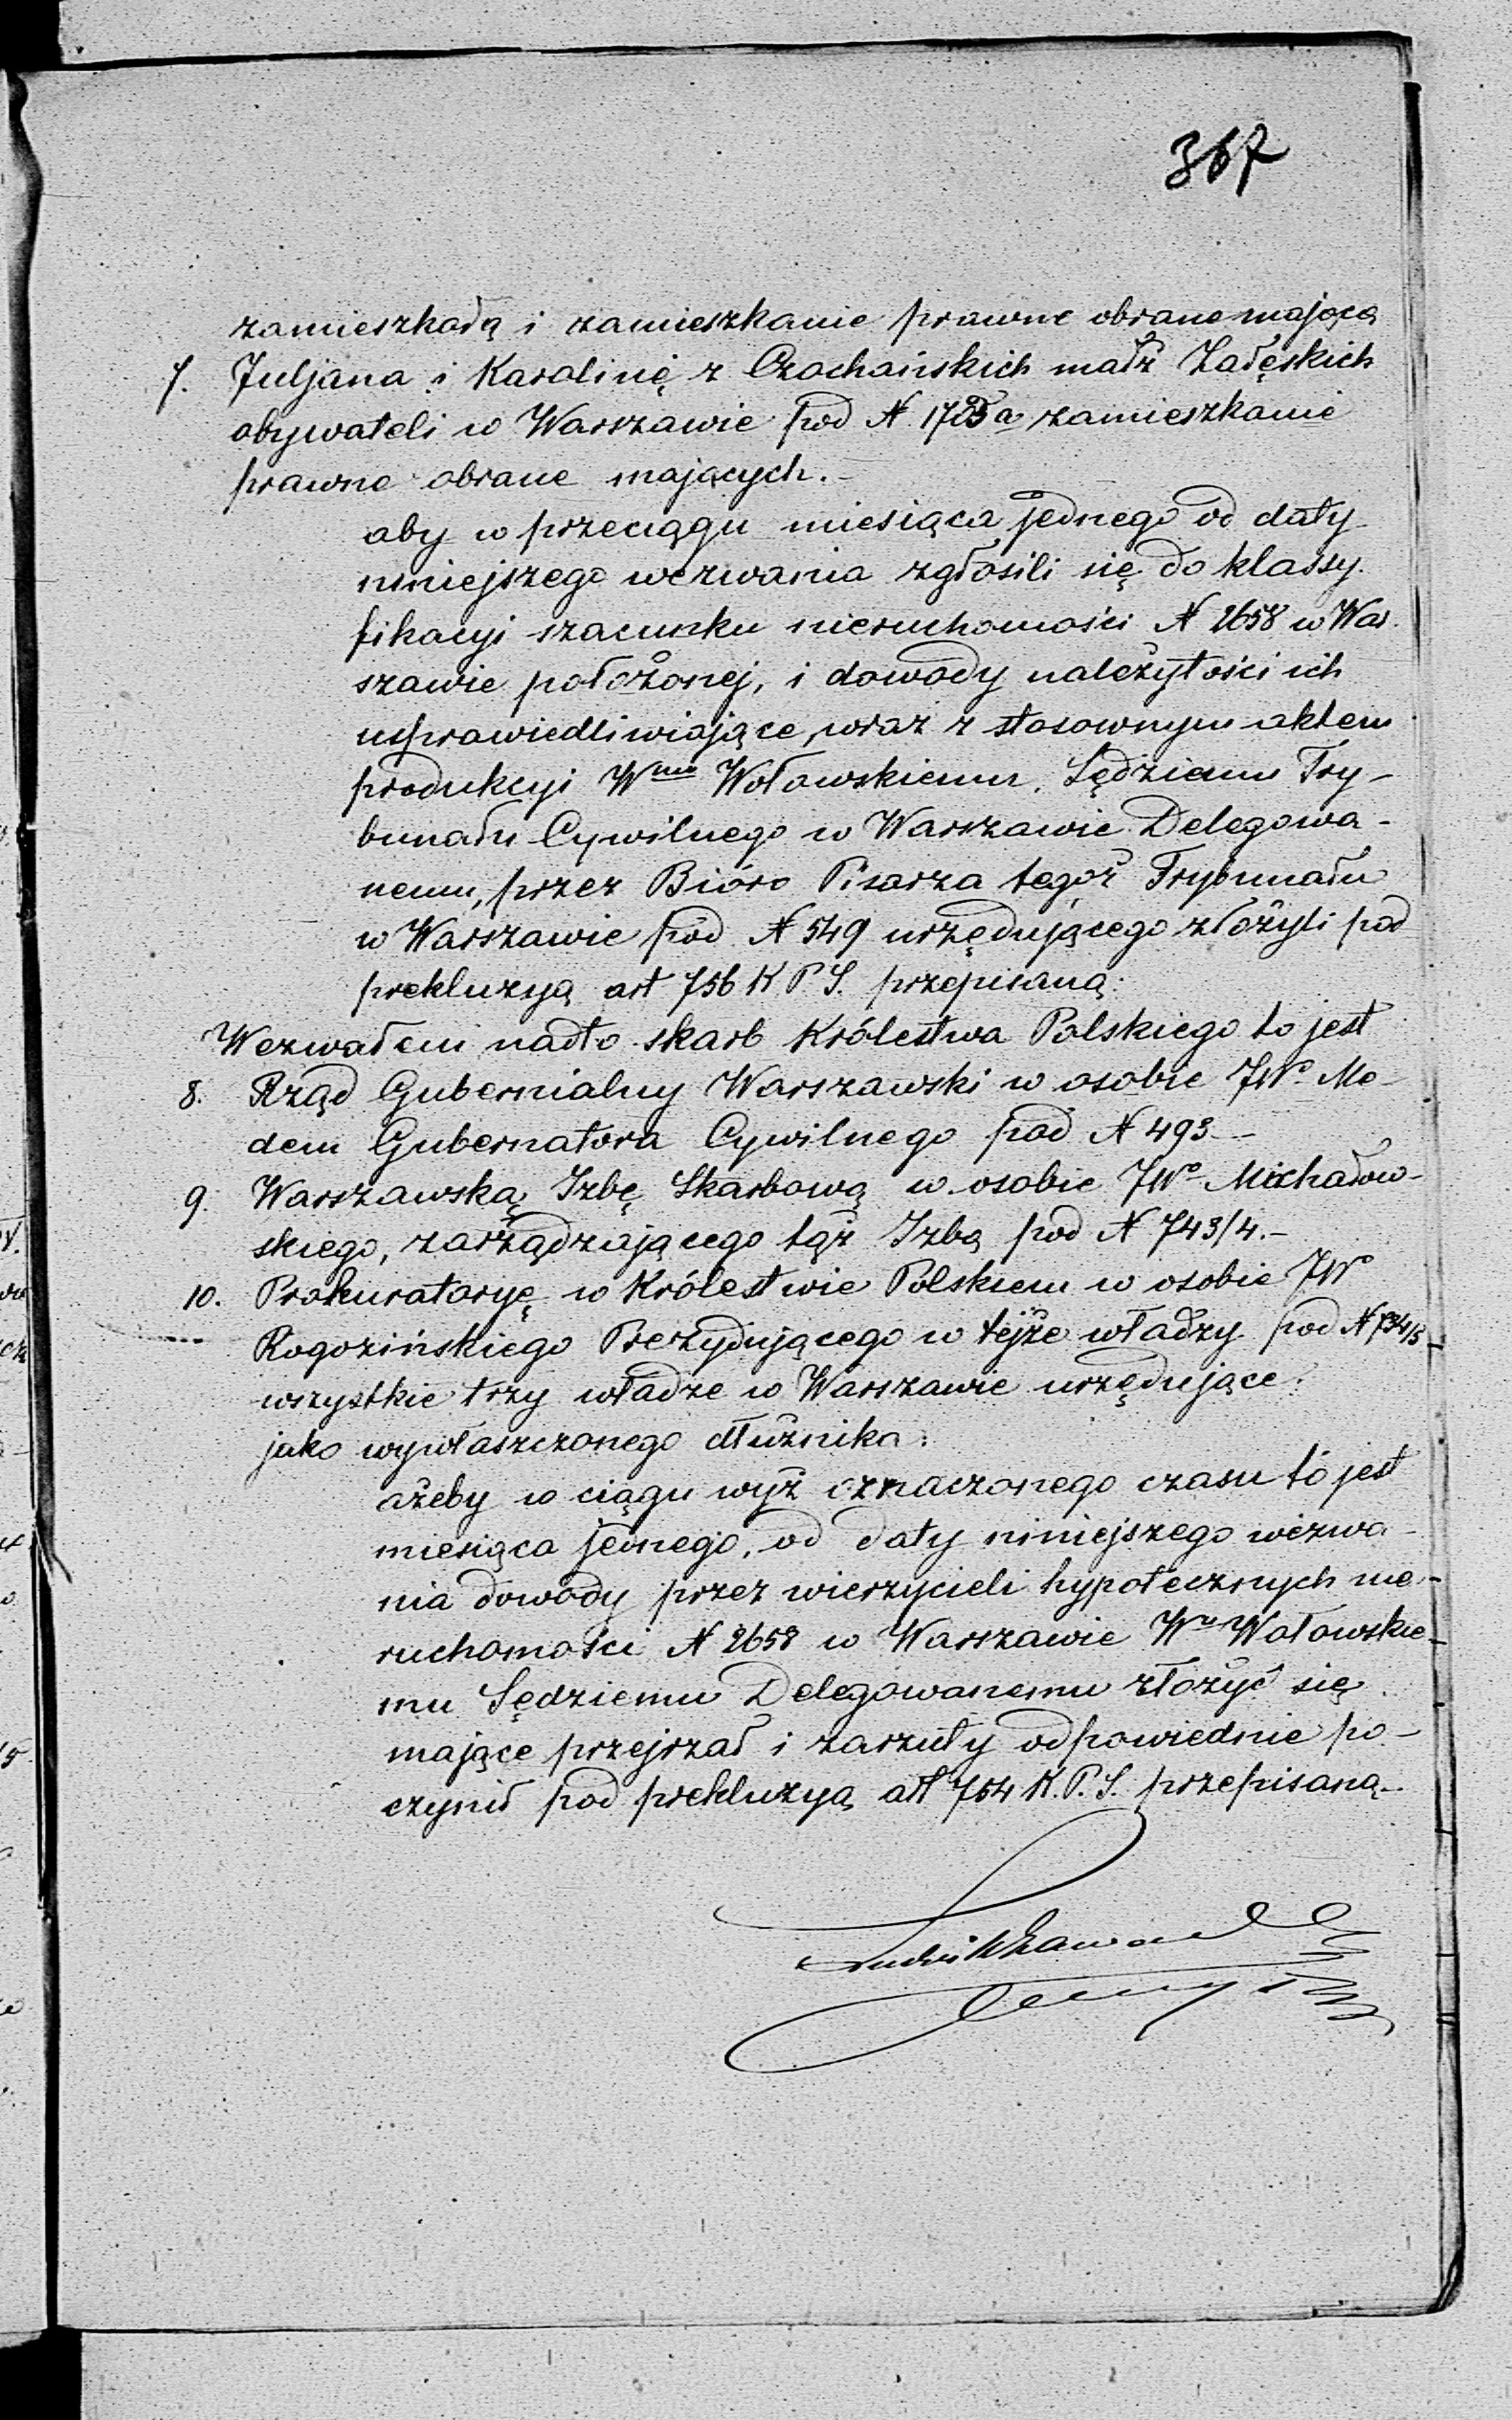 367
zamieszkałą i zamieszkanie prawne obrane mającą
7. Juljana i Karolinę z Czochańskich małż Załęskich
obywateli w Warszawie pod N 1725a zamieszkanie
prawne obrane mających.-
aby w przeciągu miesiąca jednego od daty
niniejszego wezwania zgłosili się do klassy-
fikacyi szacunku nieruchomości N 2658 w War-
szawie położonej, i dowody należytości ich
usprawiedliwiające, wraz z stosownym aktem
produkcyi Wmu Wołowskiemu, Sędziemu Try-
bunału Cywilnego w Warszawie Delegowa-
nemu, przez Bióro Pisarza tegoż Trybunału
w Warszawie pod N 549 urzędującego złożyli pod
prekluzyą art 756 K P S. przepisaną:
Wezwałem nadto skarb Królestwa Polskiego to jest
8. Rząd Gubernialny Warszawski w osobie JWo Me-
dem Gubernatora Cywilnego pod N 493--
9. Warszawską Izbę Skarbową w osobie JWo Michałow-
skiego, zarządzającego tąż Izbą pod N 743/4.-
10. Prokuratoryę w Królestwie Polskiem w osobie JWo
Rogozińskiego Prezydującego w tejże władzy pod N 734/5
wszystkie trzy władze w Warszawie urzędujące.
jako wywłaszczonego dłużnika:
ażeby w ciągu wyż oznaczonego czasu to jest
miesiąca jednego, od daty niniejszego wezwa-
nia dowody przez wierzycieli hypotecznych nie-
ruchomości N 2658 w Warszawie Wu Wołowskie-
mu Sędziemu Delegowanemu złożyć się
mające przejrzał i zarzuty odpowiednie po-
czynił pod prekluzyą art 754 K. P. S. przepisaną.-
Ludwik